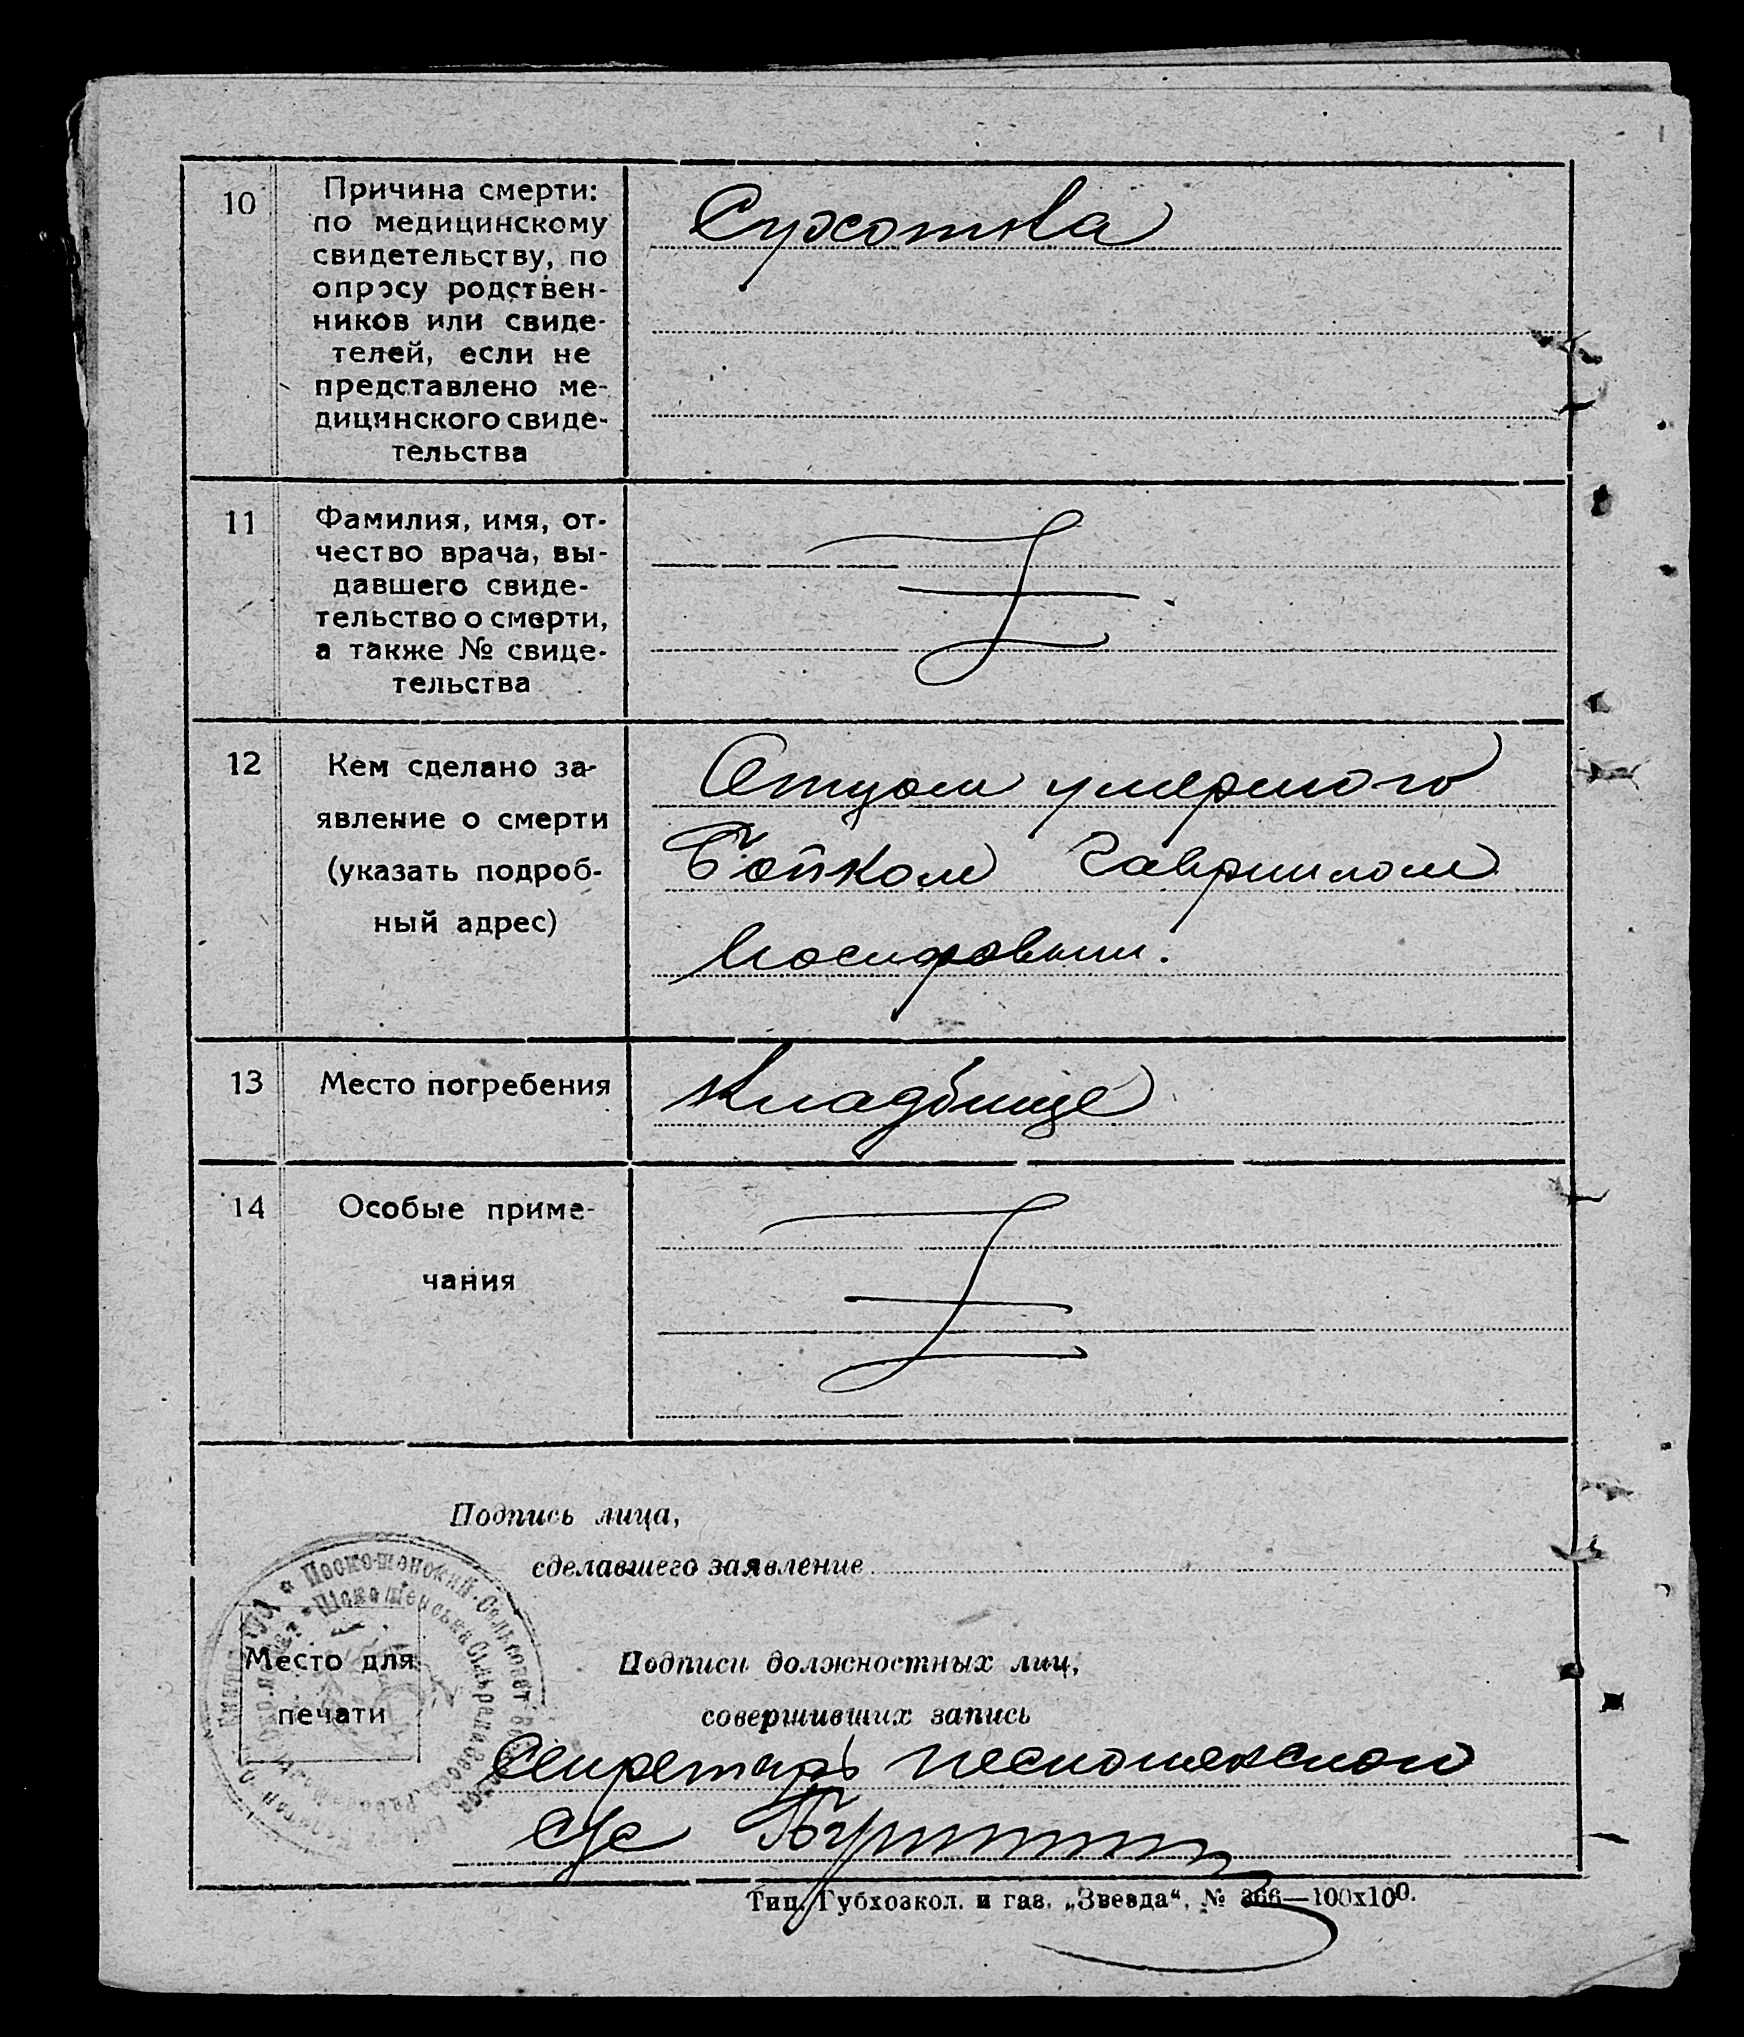 10
Причина смерти:
по медицинскому
свидетельству, по
опросу родствен-
ников или свиде-
телей, если не
представлено ме-
дицинского свиде-
тельства
Сухотка
11
Фамилия, имя, от-
чество врача, вы-
давшего свиде-
тельство о смерти,
а также № свиде-
тельства
12
Кем сделано за-
явление о смерти
(указать подроб-
ный адрес)
Отцом умершого
Бойком Гавриилом
Иосифовым.
13
Место погребения
Кладбище
14
Особые приме-
чания
Подпись лица,
сделавшего заявление
Место для
печати
Подписи должностных лиц,
совершивших запись
Секретарь
с/с
Тип. Губхозкол. и газ. „Звезда“, № 366—100х100.